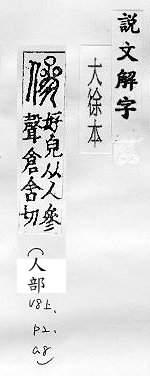 説文解字
大徐本
傪
好皃从人參
聲倉含切
(人部
V8上,
P2,
a8)